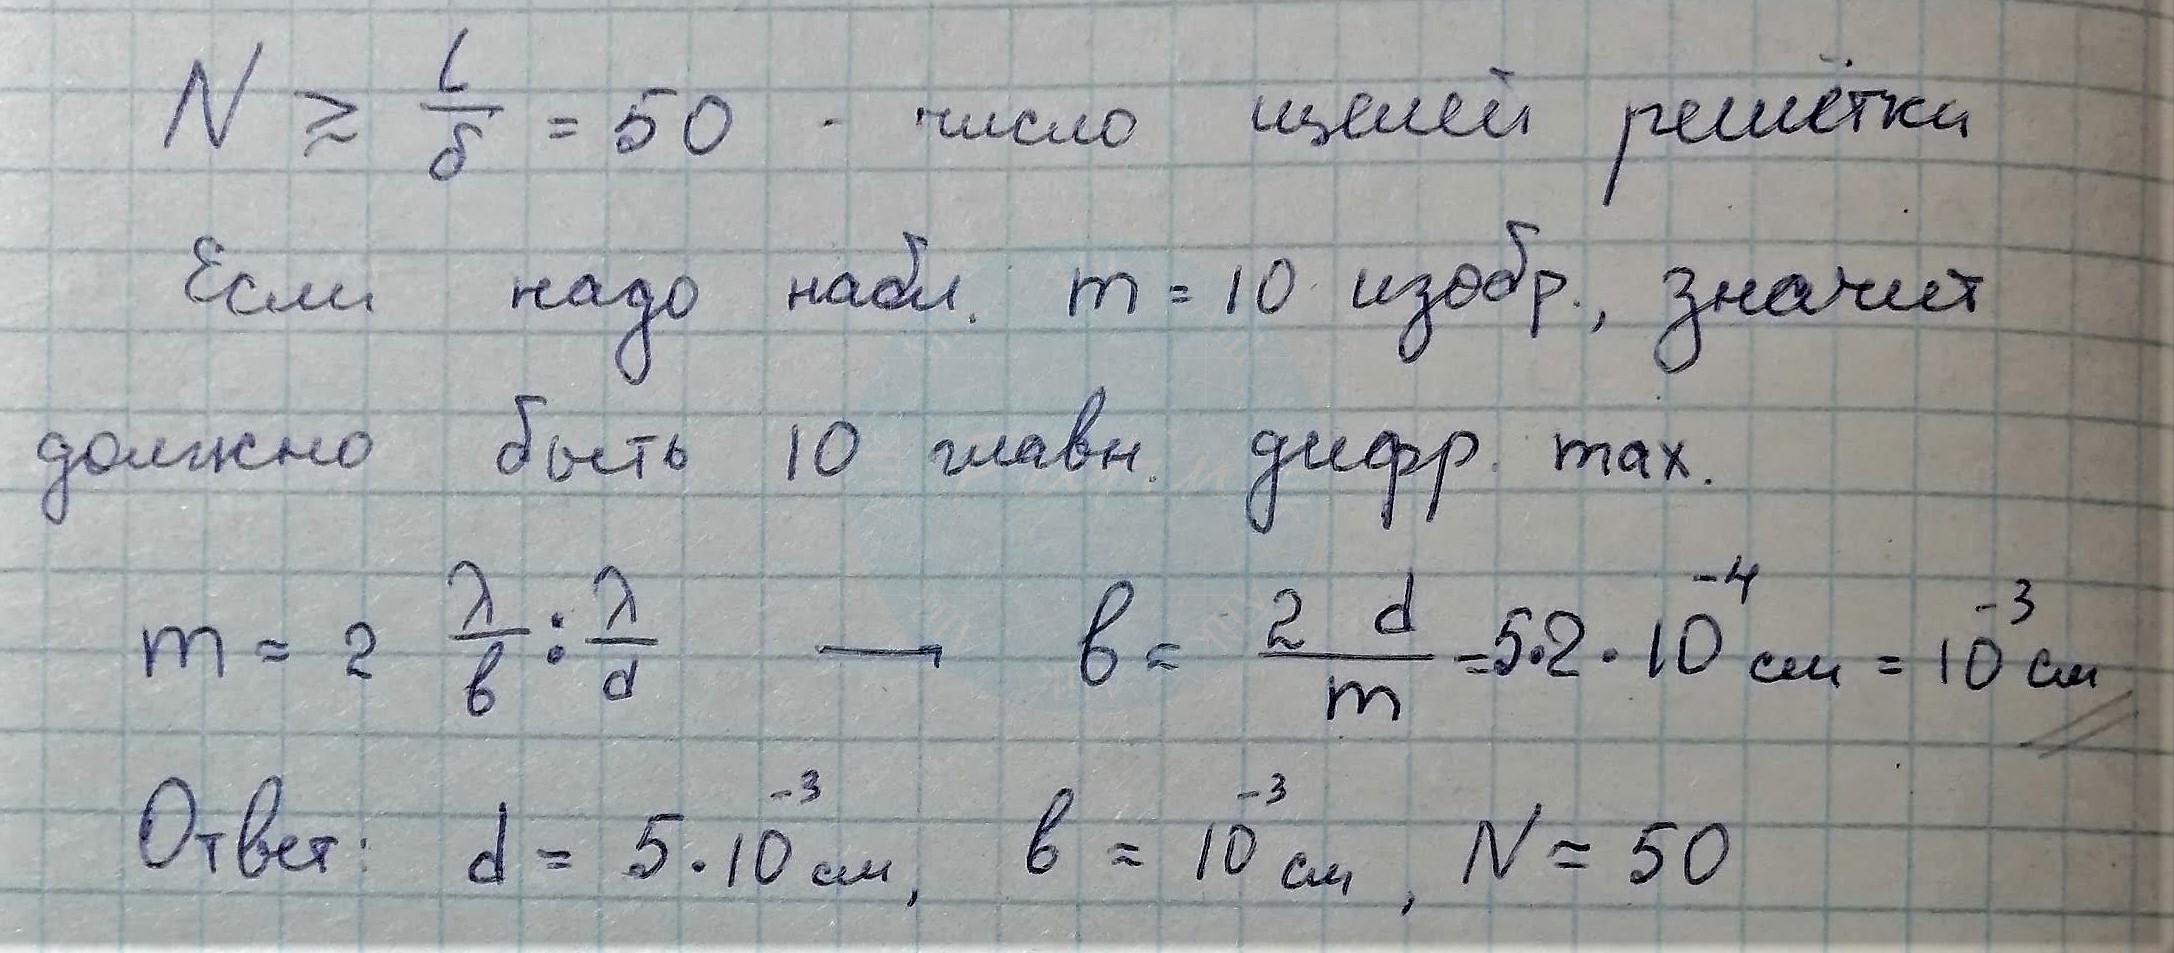 N ≳ l/δ = 50 - число щелей решётки
Если надо набл. m = 10 изобр., значит
должно быть 10 главн. дифр. max.
m = 2 λ/b : λ/d → b = 2d/m = 5·2·10⁻⁴ см = 10⁻³ см
Ответ: d = 5·10⁻³ см, b = 10⁻³ см, N = 50